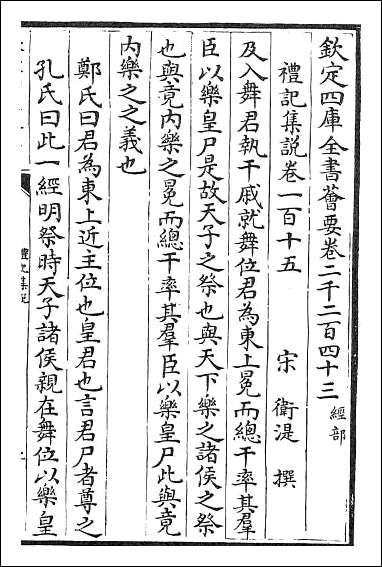 欽定四庫全書薈要卷二千二百四十三 經部
禮記集說卷一百十五
宋 衛湜 撰
及入舞君執干戚就舞位君為東上冕而總干率其羣
臣以樂皇尸是故天子之祭也與天下樂之諸侯之祭
也與竟內樂之冕而總干率其羣臣以樂皇尸此與竟
內樂之之義也
鄭氏曰君為東上近主位也皇君也言君尸者尊之
孔氏曰此一經明祭時天子諸侯親在舞位以樂皇
禮記集說